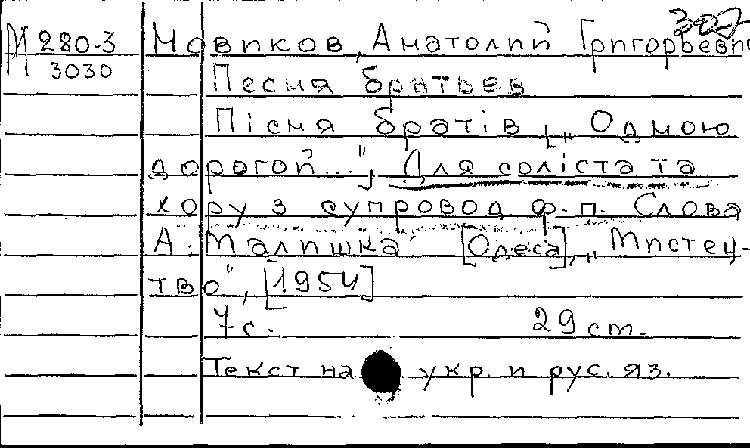 307
М 280-3
3030
Новиков, Анатолий Григорьевич
Песня братьев
Пісня братів „Одною
дорогой...", Для соліста та
хору з супровод ф.-п. Слова
А. Малишка [Одеса], „Мистец-
тво", [1954]
7 с. 29 см.
Текст на укр. и рус. яз.